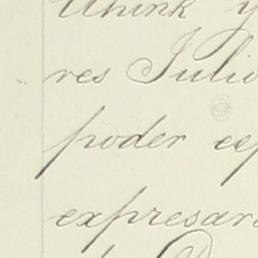 think y
res Julio
poder es
expresar